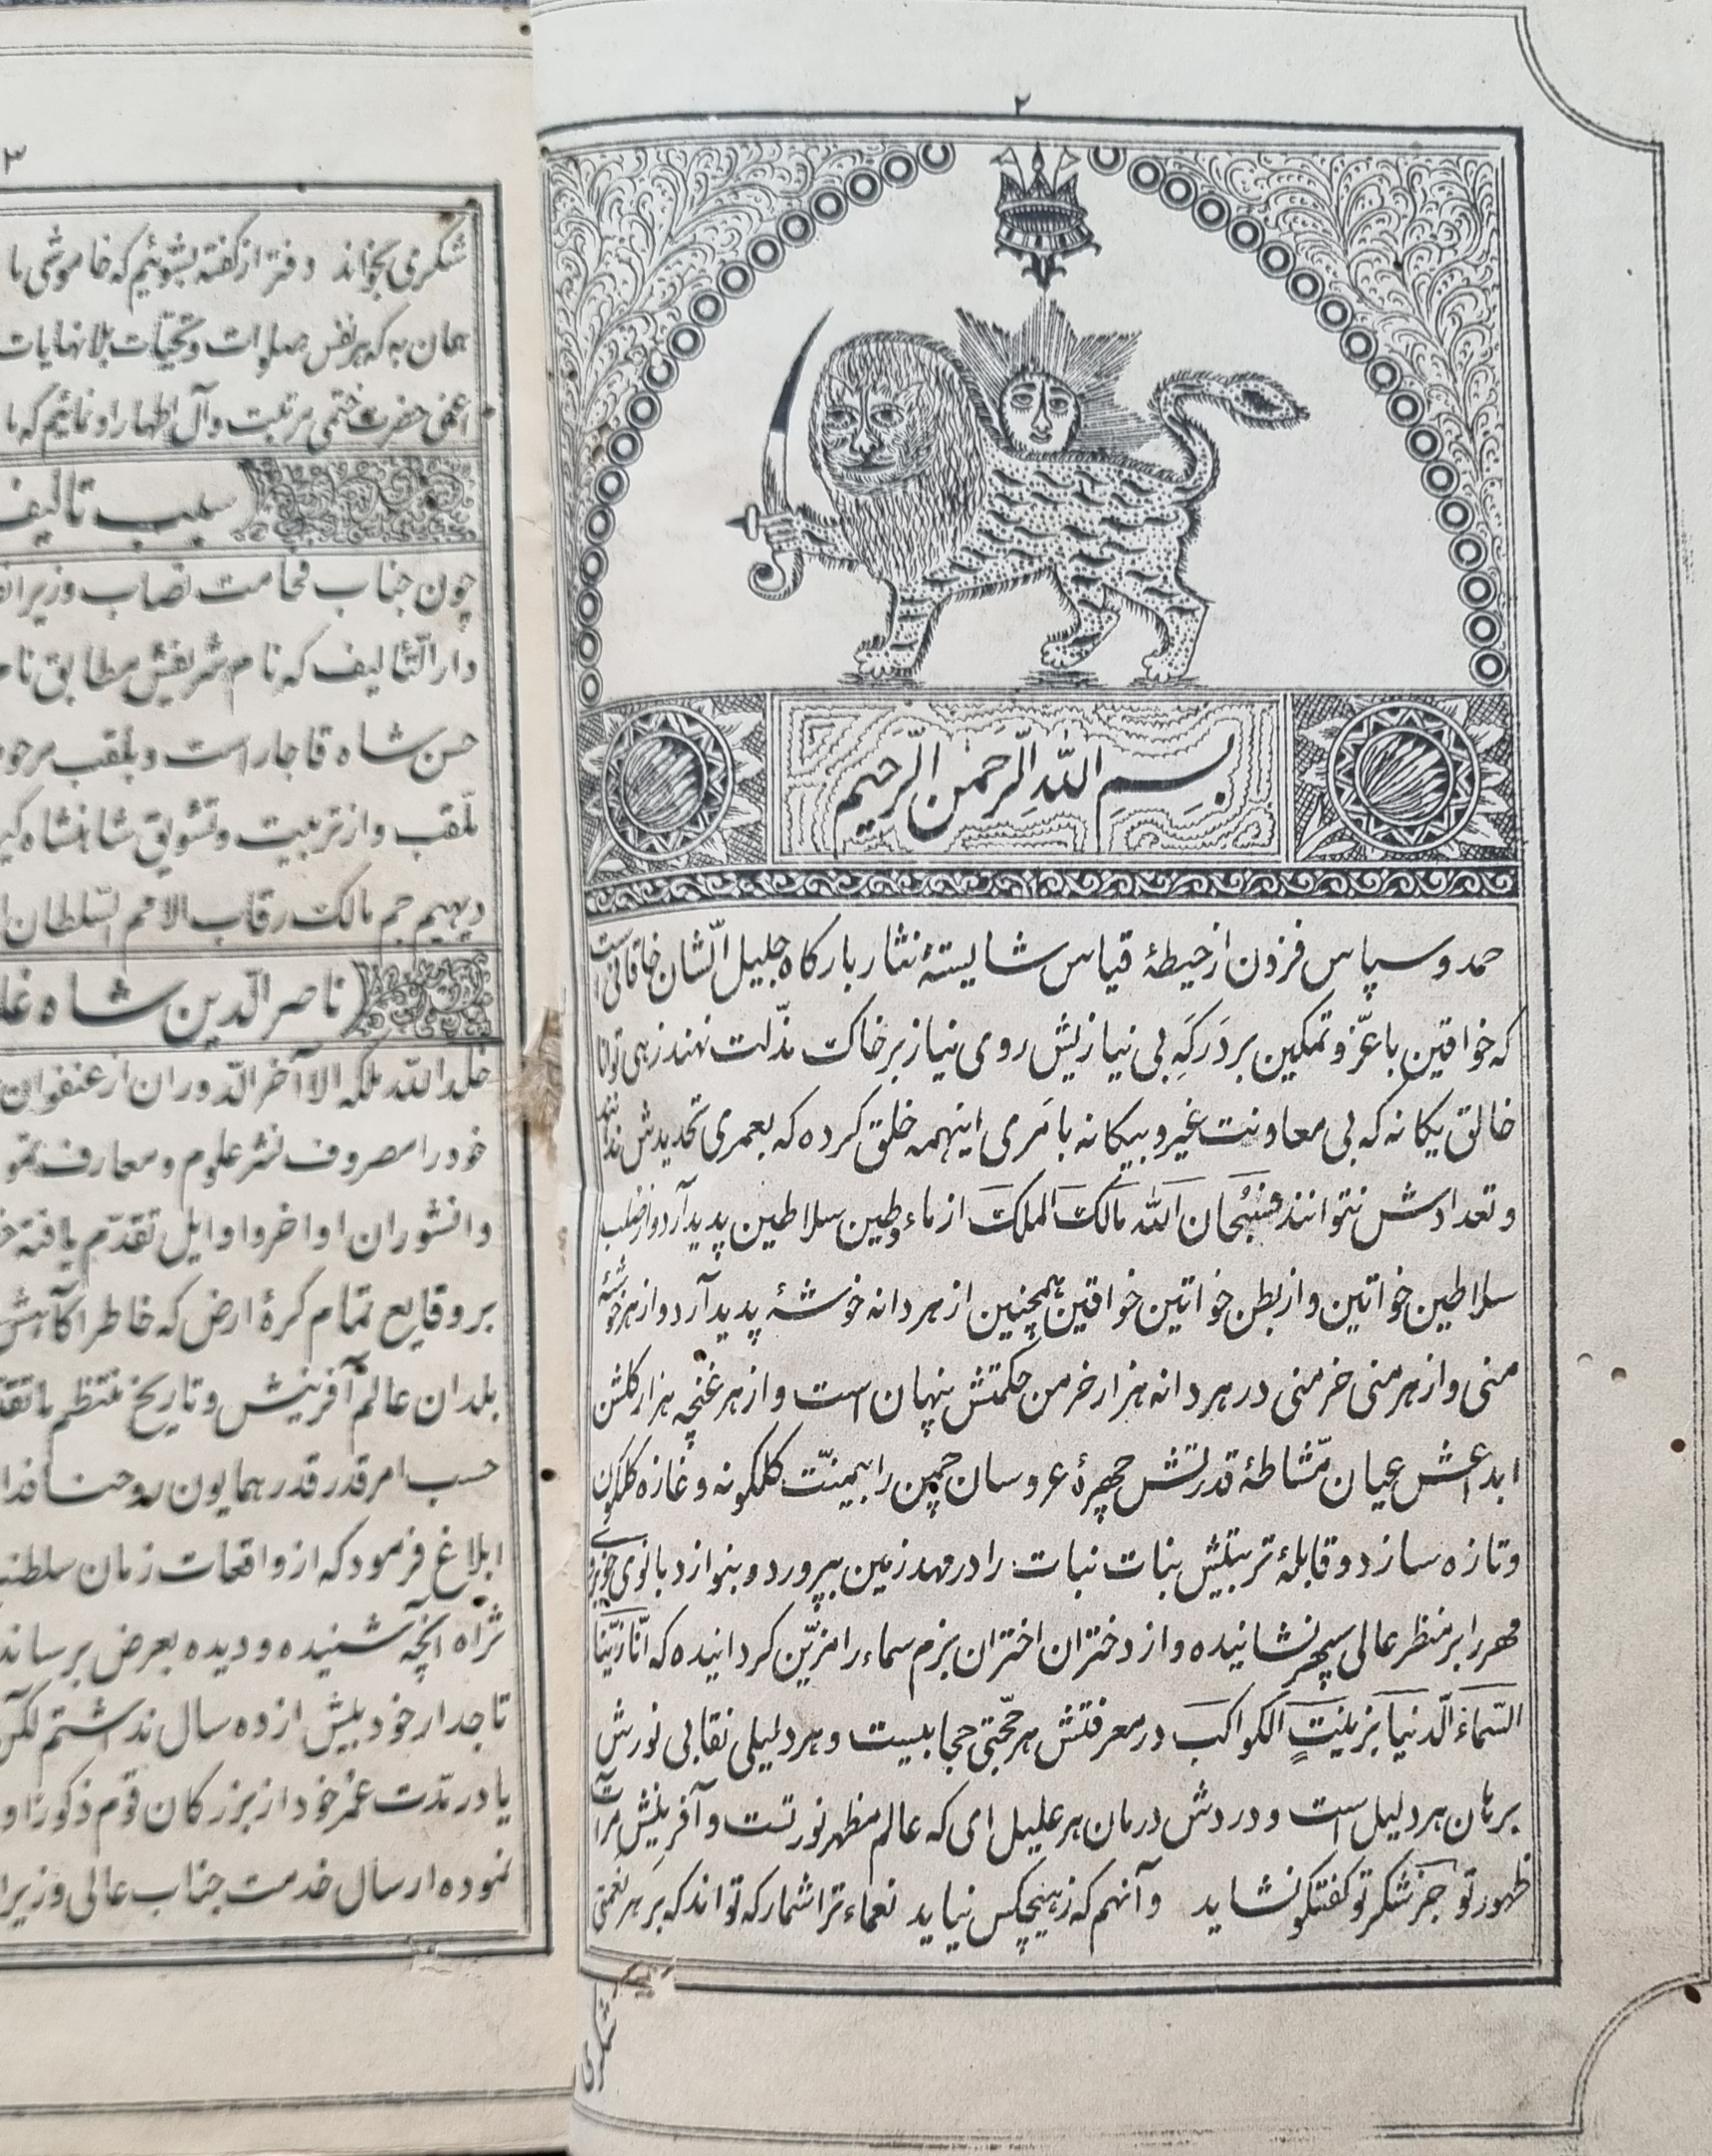 ۲
بسم الله الرحمن الرحیم
حمد و سپاس فزون از حیطهٔ قیاس شایستهٔ نثار بارکاه جلیل الشان خاقانی است
که خواقین با عزّ و تمکین بر درکه بی نیازیش روی نیاز بر خاکت مذلت نهند زهی توانا
خالق یکانه که بی معاونت غیر و بیکانه بامری اینهمه خلق کرده که بعمری تحدیدش ندانند
و تعدادش نتوانند فسبحان الله مالک الملک از ماء و طین سلاطین پدید آرد و از صلب
سلاطین خواتین و از بطن خواتین خواقین همچنین از هر دانه خوشهٔ پدید آرد و از هر خوشهٔ
منی و از هر منی خرمنی در هر دانه هزار خرمن حکمتش پنهان است و از هر غنچه هزار کلشن
ابداعش عیان مشاطهٔ قدرتش چهرهٔ عروسان چمن را بیمنّت کلکونه و غازه کلکون
و تازه سازد و قابلهٔ تربیتش بنات نبات را در مهد زمین بپرورد و بنوازد بانوی
مهر را بر منظر عالی سپهر نشانیده و از دختران اختران بزم سماء را مزیّن کردانیده که انّا زیّنّا
السّماء الدّنیا بزینةٍ الکواکب در معرفتش هر حجّتی حجابیست و هر دلیلی نقابی نورش
برهان هر دلیل است و دردش درمان هر علیل ای که عالم مظهر نور تست و آفرینش مرآت
ظهور تو جز شکر تو کفتکو نشاید و آنهم که زهیچکس نیاید نعماء ترا شمار که تواند که بر هر نعمتی
شکری
۳
شکری بخواند دفتر از کفته بشوئیم که خاموشی ما
همان به که هر نفس صلوات و تحیّات بلا نهایات
اعنی حضرت ختمی مرتبت و آل اطهار او نمائیم که ما
سبب تألیف
چون جناب فخامت نصاب وزیر
دار التألیف که نام شریفش مطابق
حسن شاه قاجار است و بلقب
ملقب و از تربیت و تشویق شاهنشاه
دیهیم جم مالک رقاب الامم السلطان
ناصر الدّین شاه
خلد الله ملکه الا آخر الدوران از عنفوان
خود را مصروف نشر علوم و معارف
دانشوران اواخر و اوایل تقدّم یافته
بر وقایع تمام کرهٔ ارض که خاطر
بلدان عالم آفرینش و تاریخ منتظم
حسب امر قدر قدر همایون روحنا فدا
ابلاغ فرمود که از واقعات زمان
آنچه شنیده و دیده بعرض برساند
تاجدار خود بیش از ده سال نداشتم
یا در مدّت عمر خود از بزرکان قوم ذکورا و
نموده ارسال خدمت جناب عالی